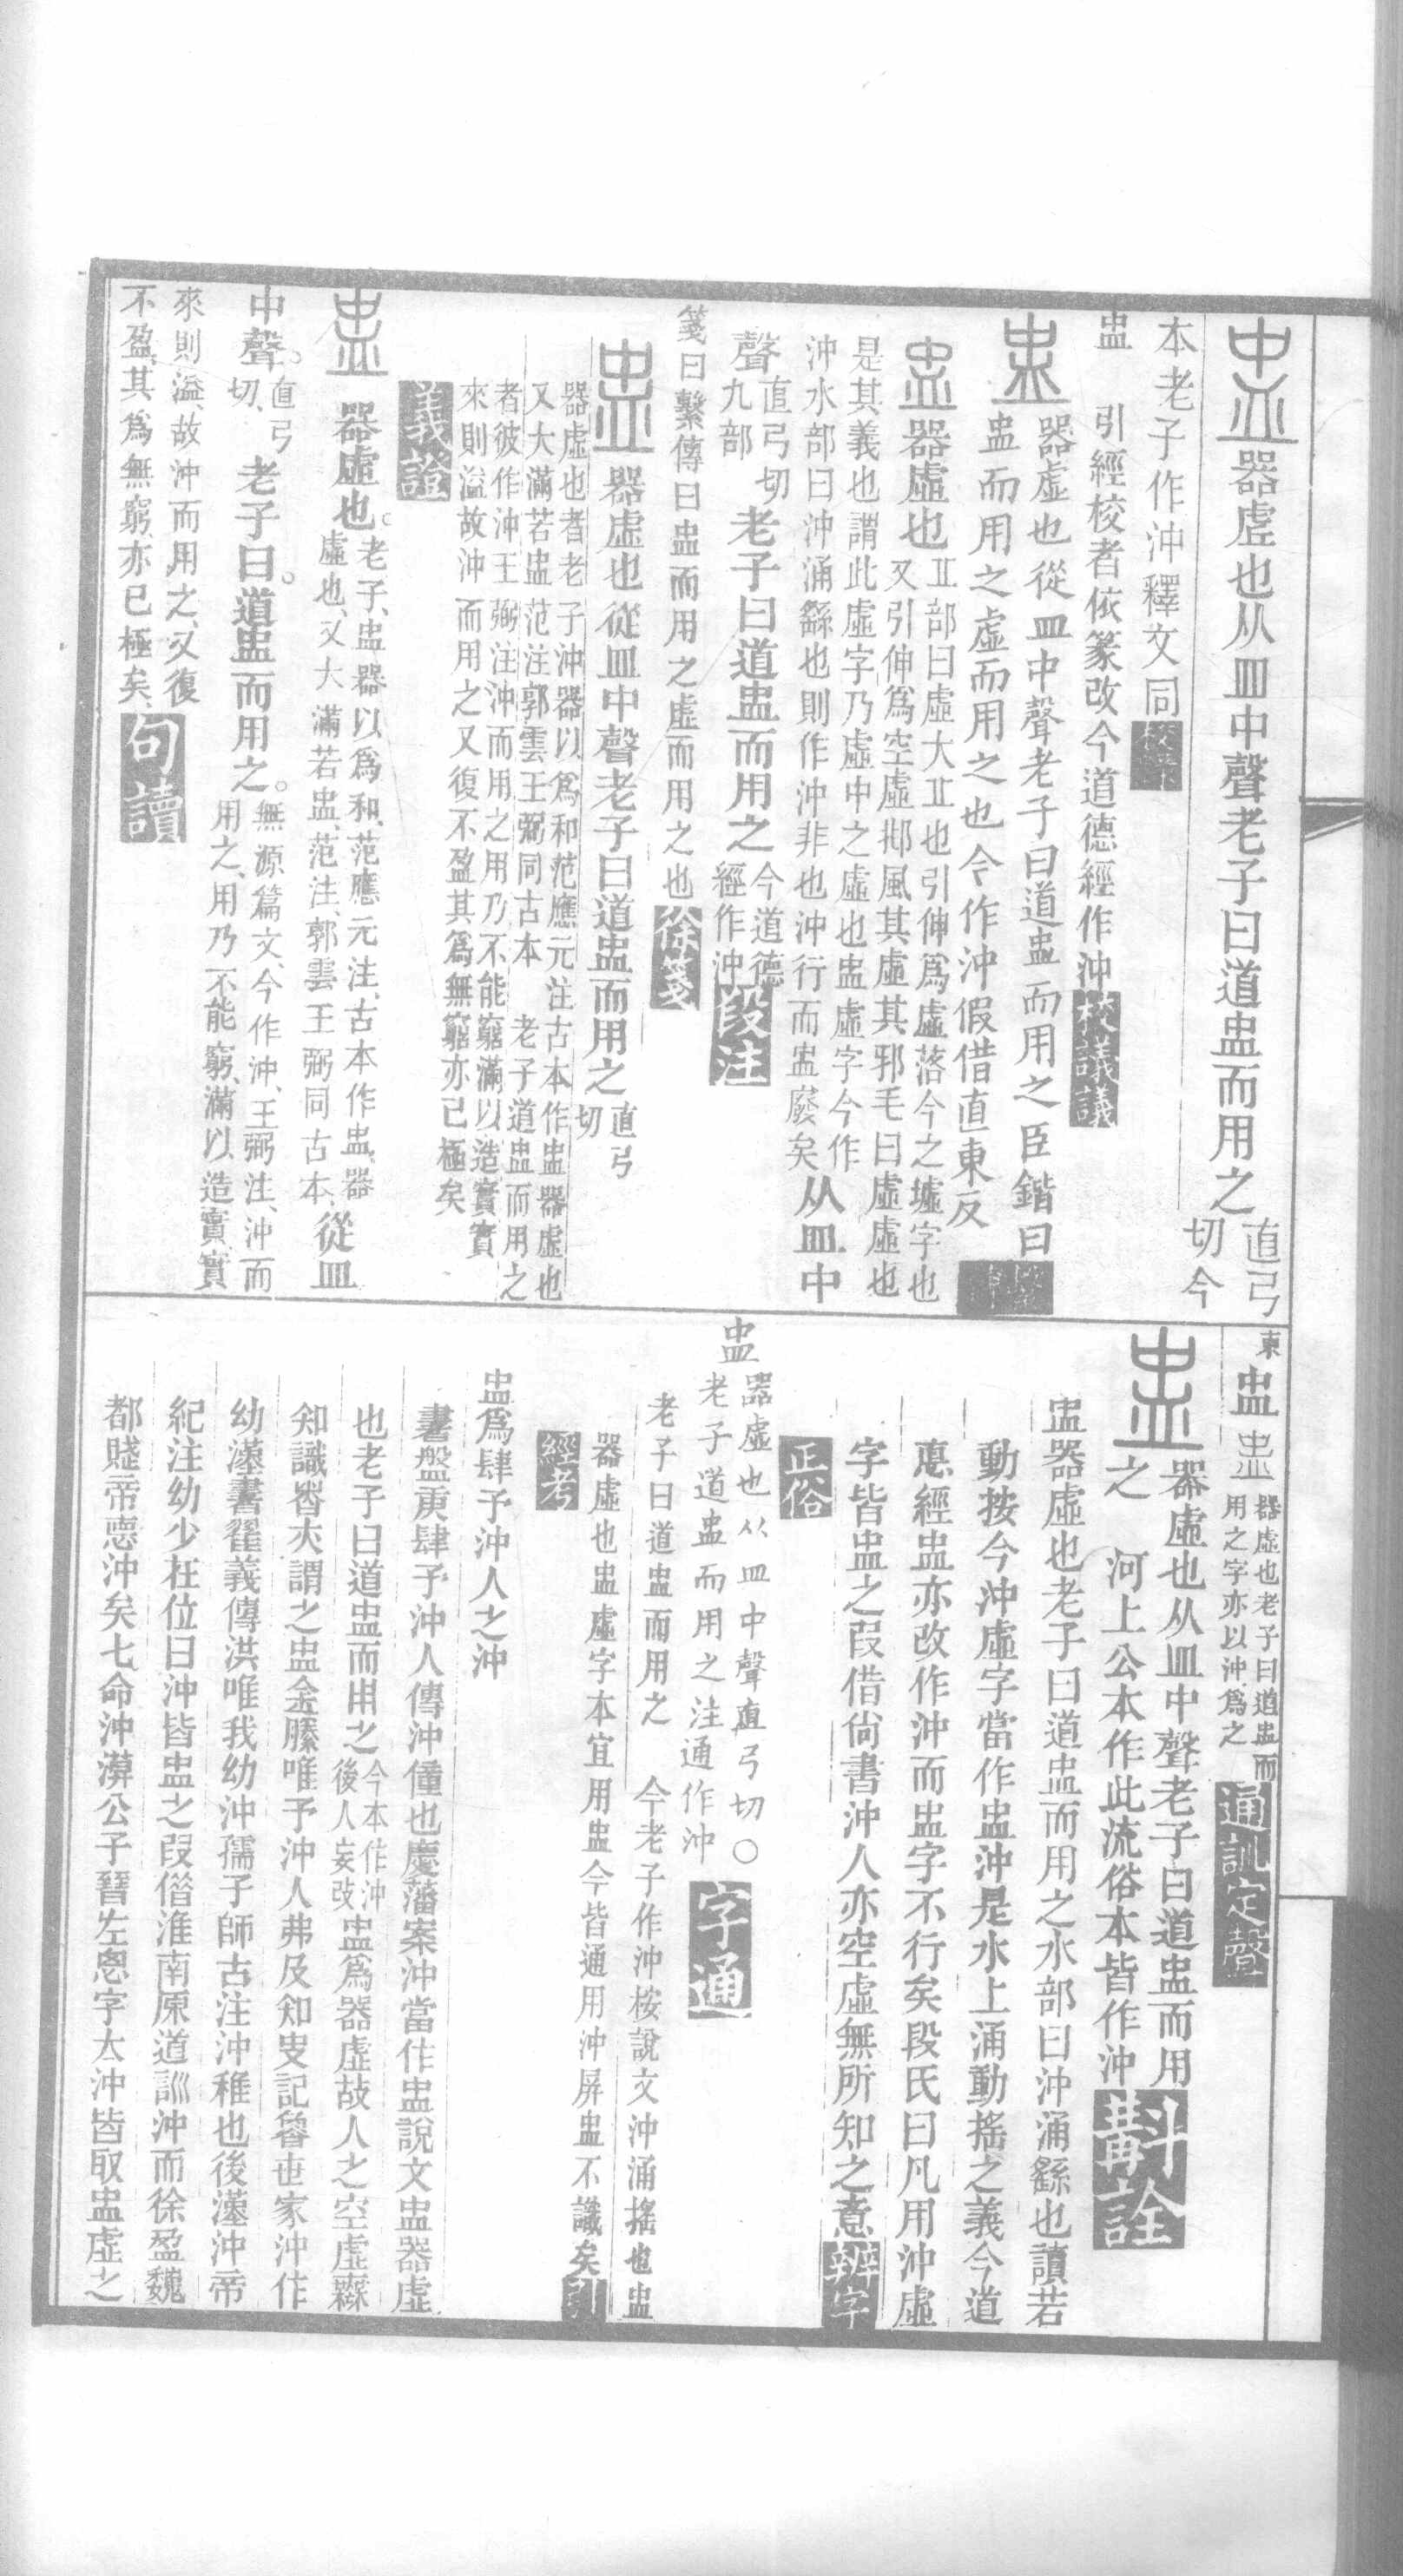 盅器虛也从皿中聲老子曰道盅而用之直弓切今
本老子作沖釋文同校錄
盅引經校者依篆改今道德經作沖校議議
盅器虛也從皿中聲老子曰道盅而用之臣鍇曰
盅而用之虛而用之也今作沖假借直東反
盅器虛也丠部曰虛大丠也引伸爲虛落今之墟字也
又引伸爲空虛邶風其虛其邪毛曰虛虛也
是其義也謂此虛字乃虛中之虛也盅虛字今作
沖水部曰沖涌繇也則作沖非也沖行而盅廢矣从皿中
聲直弓切九部老子曰道盅而用之今道德經作沖段注
箋曰繫傳曰盅而用之虛而用之也徐箋
盅器虛也從皿中聲老子曰道盅而用之直弓切
器虛也者老子沖器以爲和范應元注古本作盅器虛也
又大滿若盅范注郭雲王弼同古本 老子道盅而用之
者彼作沖王弼注沖而用之用乃不能窮滿以造實實
來則溢故沖而用之又復不盈其爲無窮亦已極矣
義證
盅器虛也。老子、盅器以爲和、范應元注、古本作盅、器
虛也、又大滿若盅、范注、郭雲王弼同古本、從皿
中聲。直弓切、老子曰。道盅而用之。無源篇文、今作沖、王弼注、沖而
用之、用乃不能窮、滿以造實、實
來則溢、故沖而用之、又復
不盈、其爲無窮、亦已極矣、句讀
東盅盅器虛也老子曰道盅而
用之字亦以沖爲之通訓定聲
盅器虛也从皿中聲老子曰道盅而用
之 河上公本作此流俗本皆作沖斠詮
盅器虛也老子曰道盅而用之水部曰沖涌繇也讀若
動按今沖虛字當作盅沖是水上涌動搖之義今道
悳經盅亦改作沖而盅字不行矣段氏曰凡用沖虛
字皆盅之叚借尙書沖人亦空虛無所知之意辨字
正俗
盅器虛也从皿中聲直弓切○
老子道盅而用之注通作沖字通
老子曰道盅而用之 今老子作沖桉說文沖涌搖也盅
器虛也盅虛字本宜用盅今皆通用沖屏盅不識矣引
經考
盅爲肆予沖人之沖
書盤庚肆予沖人傳沖僮也慶藩案沖當作盅說文盅器虛
也老子曰道盅而用之今本作沖後人妄改盅爲器虛故人之空虛無
知識者亦謂之盅金縢唯予沖人弗及知史記魯世家沖作
幼漢書翟義傳洪唯我幼沖孺子師古注沖稚也後漢沖帝
紀注幼少在位曰沖皆盅之叚借淮南原道訓沖而徐盈魏
都賤帝悳沖矣七命沖漠公子晉左思字太沖皆取盅虛之